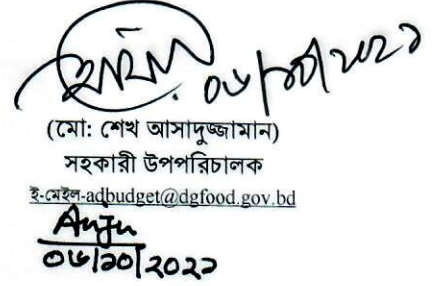 ০৬/১০/২০২১
(মো: শেখ আসাদুজ্জামান)
সহকারী উপপরিচালক
ই-মেইল-adbudget@dgfood.gov.bd
০৬/১০/২০২১